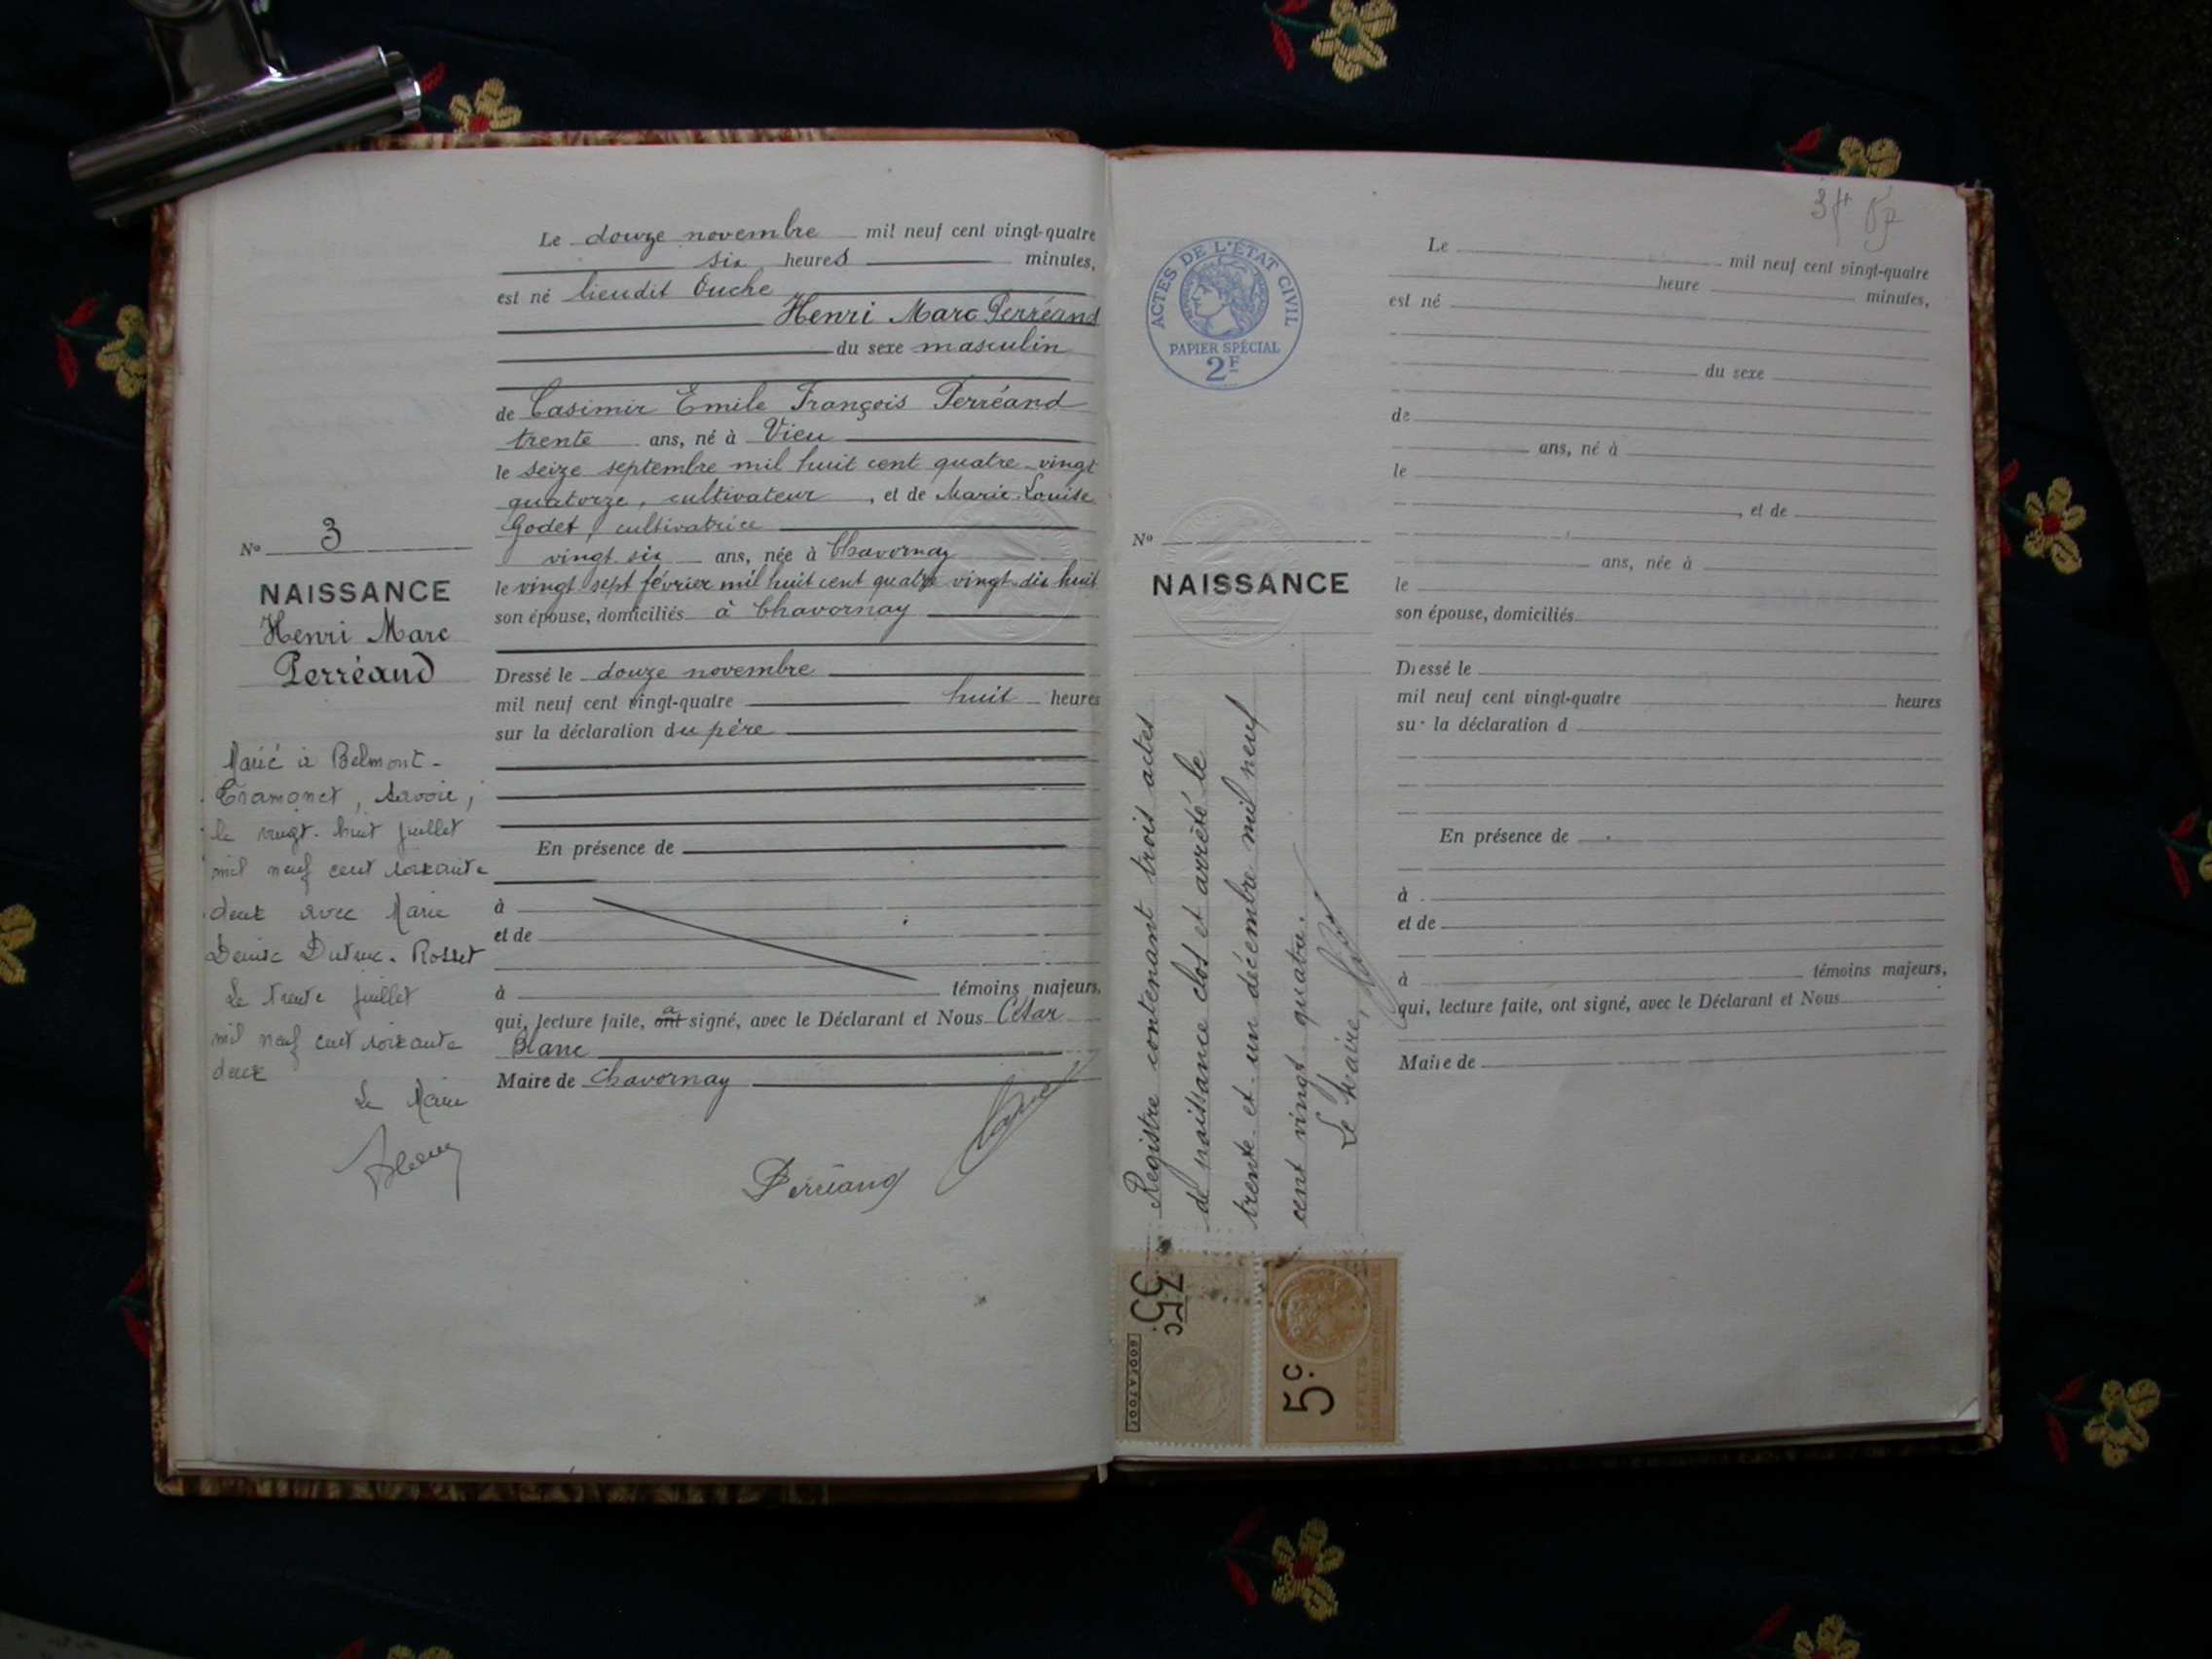 Le douze novembre mil neuf cent vingt-quatre
six heures minutes,
est né lieudit Ouche
Henri Marc Perréand
du sexe masculin
de Casimir Emile François Perréand
trente ans, né à Vieu
le seize septembre mil huit cent quatre-vingt
quatorze, cultivateur, et de Marie-Louise
Godet, cultivatrice
vingt six ans, née à Chavornay
le vingt sept février mil huit cent quatre vingt dix huit
son épouse, domiciliés à Chavornay
Dressé le douze novembre
mil neuf cent vingt-quatre huit heures
sur la déclaration du père
En présence de
à
et de
à témoins majeurs,
qui, lecture faite, ont a signé, avec le Déclarant et Nous César
Blanc
Maire de Chavornay
Perréand
Blanc
No 3
NAISSANCE
Henri Marc
Perréand
Marié à Belmont-
Tramonet, Savoie,
le vingt-huit juillet
mil neuf cent soixante
deux avec Marie
Denise Dutruc-Rosset
Le trente juillet
mil neuf cent soixante
deux
Le Maire
ACTES DE L'ÉTAT CIVIL
PAPIER SPÉCIAL
2F
No
NAISSANCE
Registre contenant trois actes
de naissance clos et arrêté le
trente-et-un décembre mil neuf
cent vingt-quatre.
Le Maire,
75c
5c
Le mil neuf cent vingt-quatre
heure minutes,
est né
du sexe
de
ans, né à
le
, et de
ans, née à
le
son épouse, domiciliés
Dressé le
mil neuf cent vingt-quatre heures
sur la déclaration d
En présence de
à
et de
à témoins majeurs,
qui, lecture faite, ont signé, avec le Déclarant et Nous
Maire de